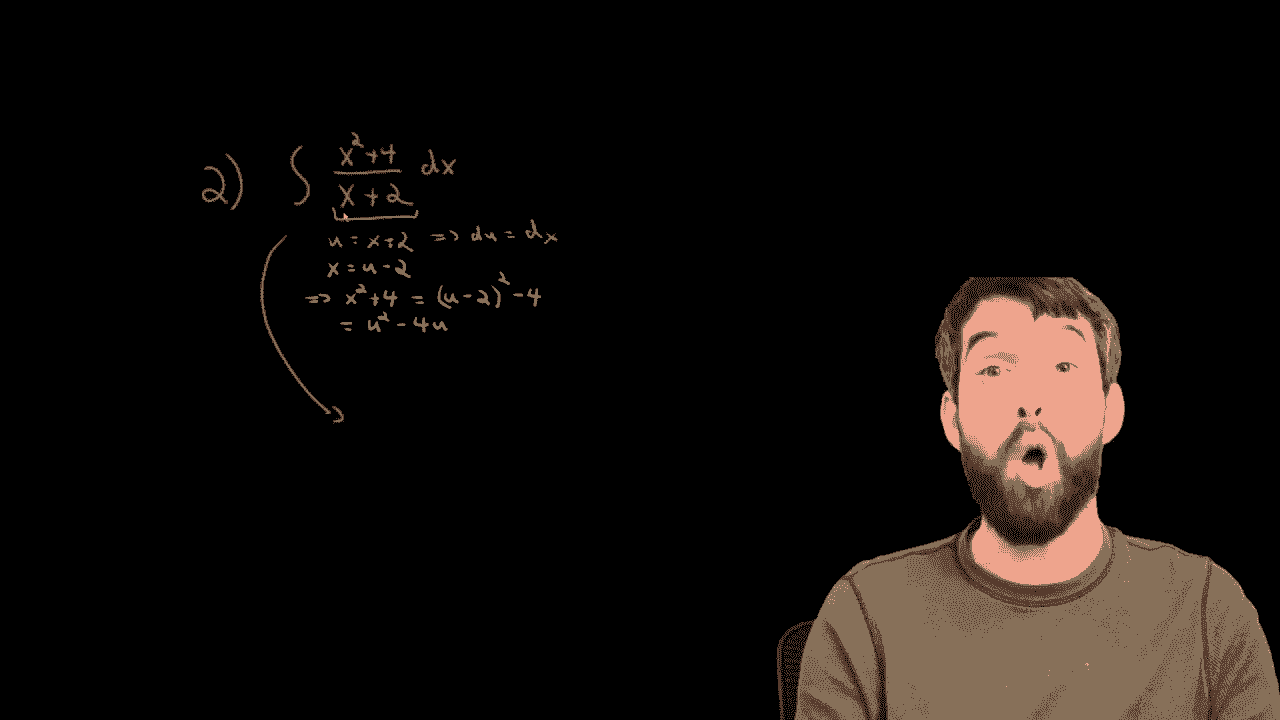 2) ∫ (x²+4)/(x+2) dx
u = x+2 => du = dx
x = u-2
=> x²+4 = (u-2)²-4
= u²-4u